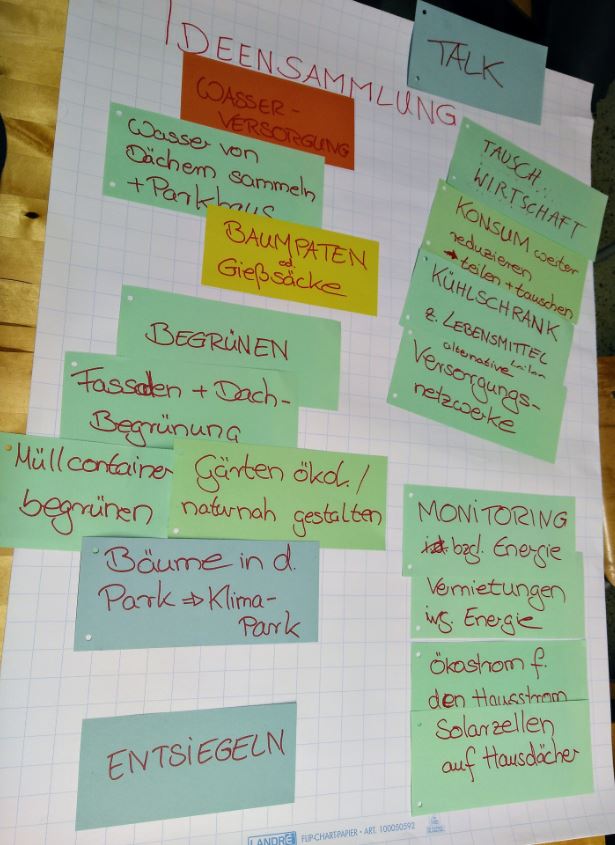 IDEENSAMMLUNG
TALK
WASSER-
VERSORGUNG
Wasser von
Dächern sammeln
+ Parkhaus
BAUMPATEN
od.
Gießsäcke
BEGRÜNEN
Fassaden + Dach-
Begrünung
Müllcontainer
begrünen
Gärten ökol. /
naturnah gestalten
Bäume in d.
Park => Klima-
Park
ENTSIEGELN
TAUSCH
WIRTSCHAFT
KONSUM weiter
reduzieren
→ teilen + tauschen
KÜHLSCHRANK
z. LEBENSMITTEL
teilen
alternative
Versorgungs-
netzwerke
MONITORING
bzgl. Energie
Vermietungen
Energie
Ökostrom f.
den Hausstrom
Solarzellen
auf Hausdächer
LANDRÉ FLIP-CHART-PAPIER • ART. 100050592